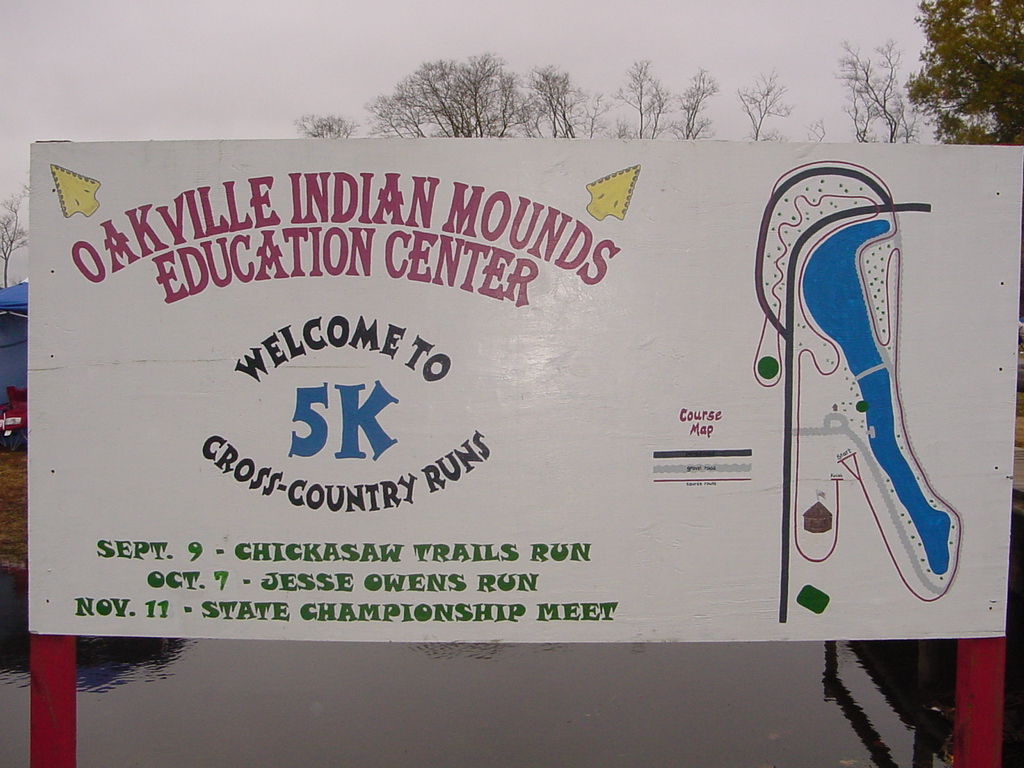 OAKVILLE INDIAN MOUNDS
EDUCATION CENTER
WELCOME TO
5K
CROSS-COUNTRY RUNS
SEPT. 9 - CHICKASAW TRAILS RUN
OCT. 7 - JESSE OWENS RUN
NOV. 11 - STATE CHAMPIONSHIP MEET
Course
Map
gravel road
course route
Start
Finish